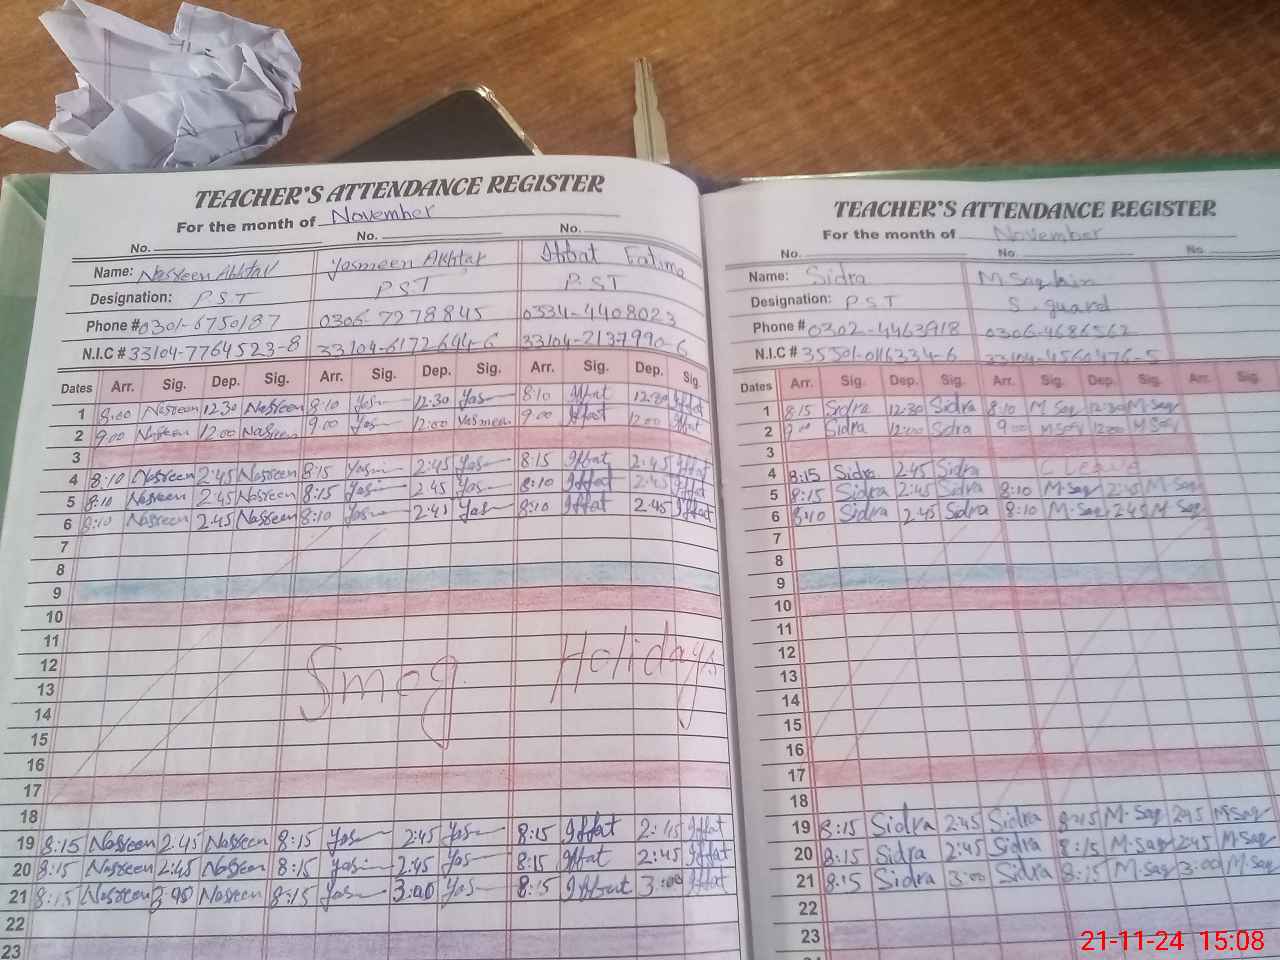 TEACHER'S ATTENDANCE REGISTER
For the month of November
No. No. No.
Name: Nasreen Akhtar Yasmeen Akhtar Iffat Fatima
Designation: P.S.T P.S.T P.S.T
Phone # 0301-6750187 0306-7278845 0334-4408023
N.I.C # 33104-7764523-8 33104-6172694-6 33104-2137990-6
Dates Arr. Sig. Dep. Sig. Arr. Sig. Dep. Sig. Arr. Sig. Dep. Sig.
1 8:00 Nasreen 12:30 Nasreen 8:10 Yas 12:30 Yas 8:10 Iffat 12:30 Iffat
2 9:00 Nasreen 12:00 Nasreen 9:00 Yas 12:00 Yasmeen 9:00 Iffat 12:00 Iffat
3
4 8:10 Nasreen 2:45 Nasreen 8:15 Yas 2:45 Yas 8:15 Iffat 2:45 Iffat
5 8:10 Nasreen 2:45 Nasreen 8:15 Yas 2:45 Yas 8:10 Iffat 2:45 Iffat
6 8:10 Nasreen 2:45 Nasreen 8:10 Yas 2:45 Yas 8:10 Iffat 2:45 Iffat
7
8
9
10
11
12 Smog Holidays
13
14
15
16
17
18
19 8:15 Nasreen 2:45 Nasreen 8:15 Yas 2:45 Yas 8:15 Iffat 2:45 Iffat
20 8:15 Nasreen 2:45 Nasreen 8:15 Yas 2:45 Yas 8:15 Iffat 2:45 Iffat
21 8:15 Nasreen Nasreen 8:15 Yas 3:00 Yas 8:15 Iffat 3:00 Iffat
22
23
TEACHER'S ATTENDANCE REGISTER
For the month of November
No. No. No.
Name: Sidra M Saqlain
Designation: P.S.T S. guard
Phone # 0302-4463918 0306-4686562
N.I.C # 35501-0116334-6 33104-4560476-5
Dates Arr. Sig. Dep. Sig. Arr. Sig. Dep. Sig. Arr. Sig.
1 8:15 Sidra 12:30 Sidra 8:10 M Saq 12:30 M-Saq
2 Sidra 12:00 Sidra 9:00 M Saq 12:00 M Saq
3
4 8:15 Sidra 2:45 Sidra C Leave
5 8:15 Sidra 2:45 Sidra 8:10 M-Saq 2:45 M-Saq
6 8:10 Sidra 2:45 Sidra 8:10 M-Saq 2:45 M-Saq
7
8
9
10
11
12
13
14
15
16
17
18
19 8:15 Sidra 2:45 Sidra 8:15 M-Saq 2:45 M-Saq
20 8:15 Sidra 2:45 Sidra 8:15 M-Saq 2:45 M-Saq
21 8:15 Sidra 3:00 Sidra 8:15 M-Saq 3:00 M-Saq
22
23
21-11-24 15:08